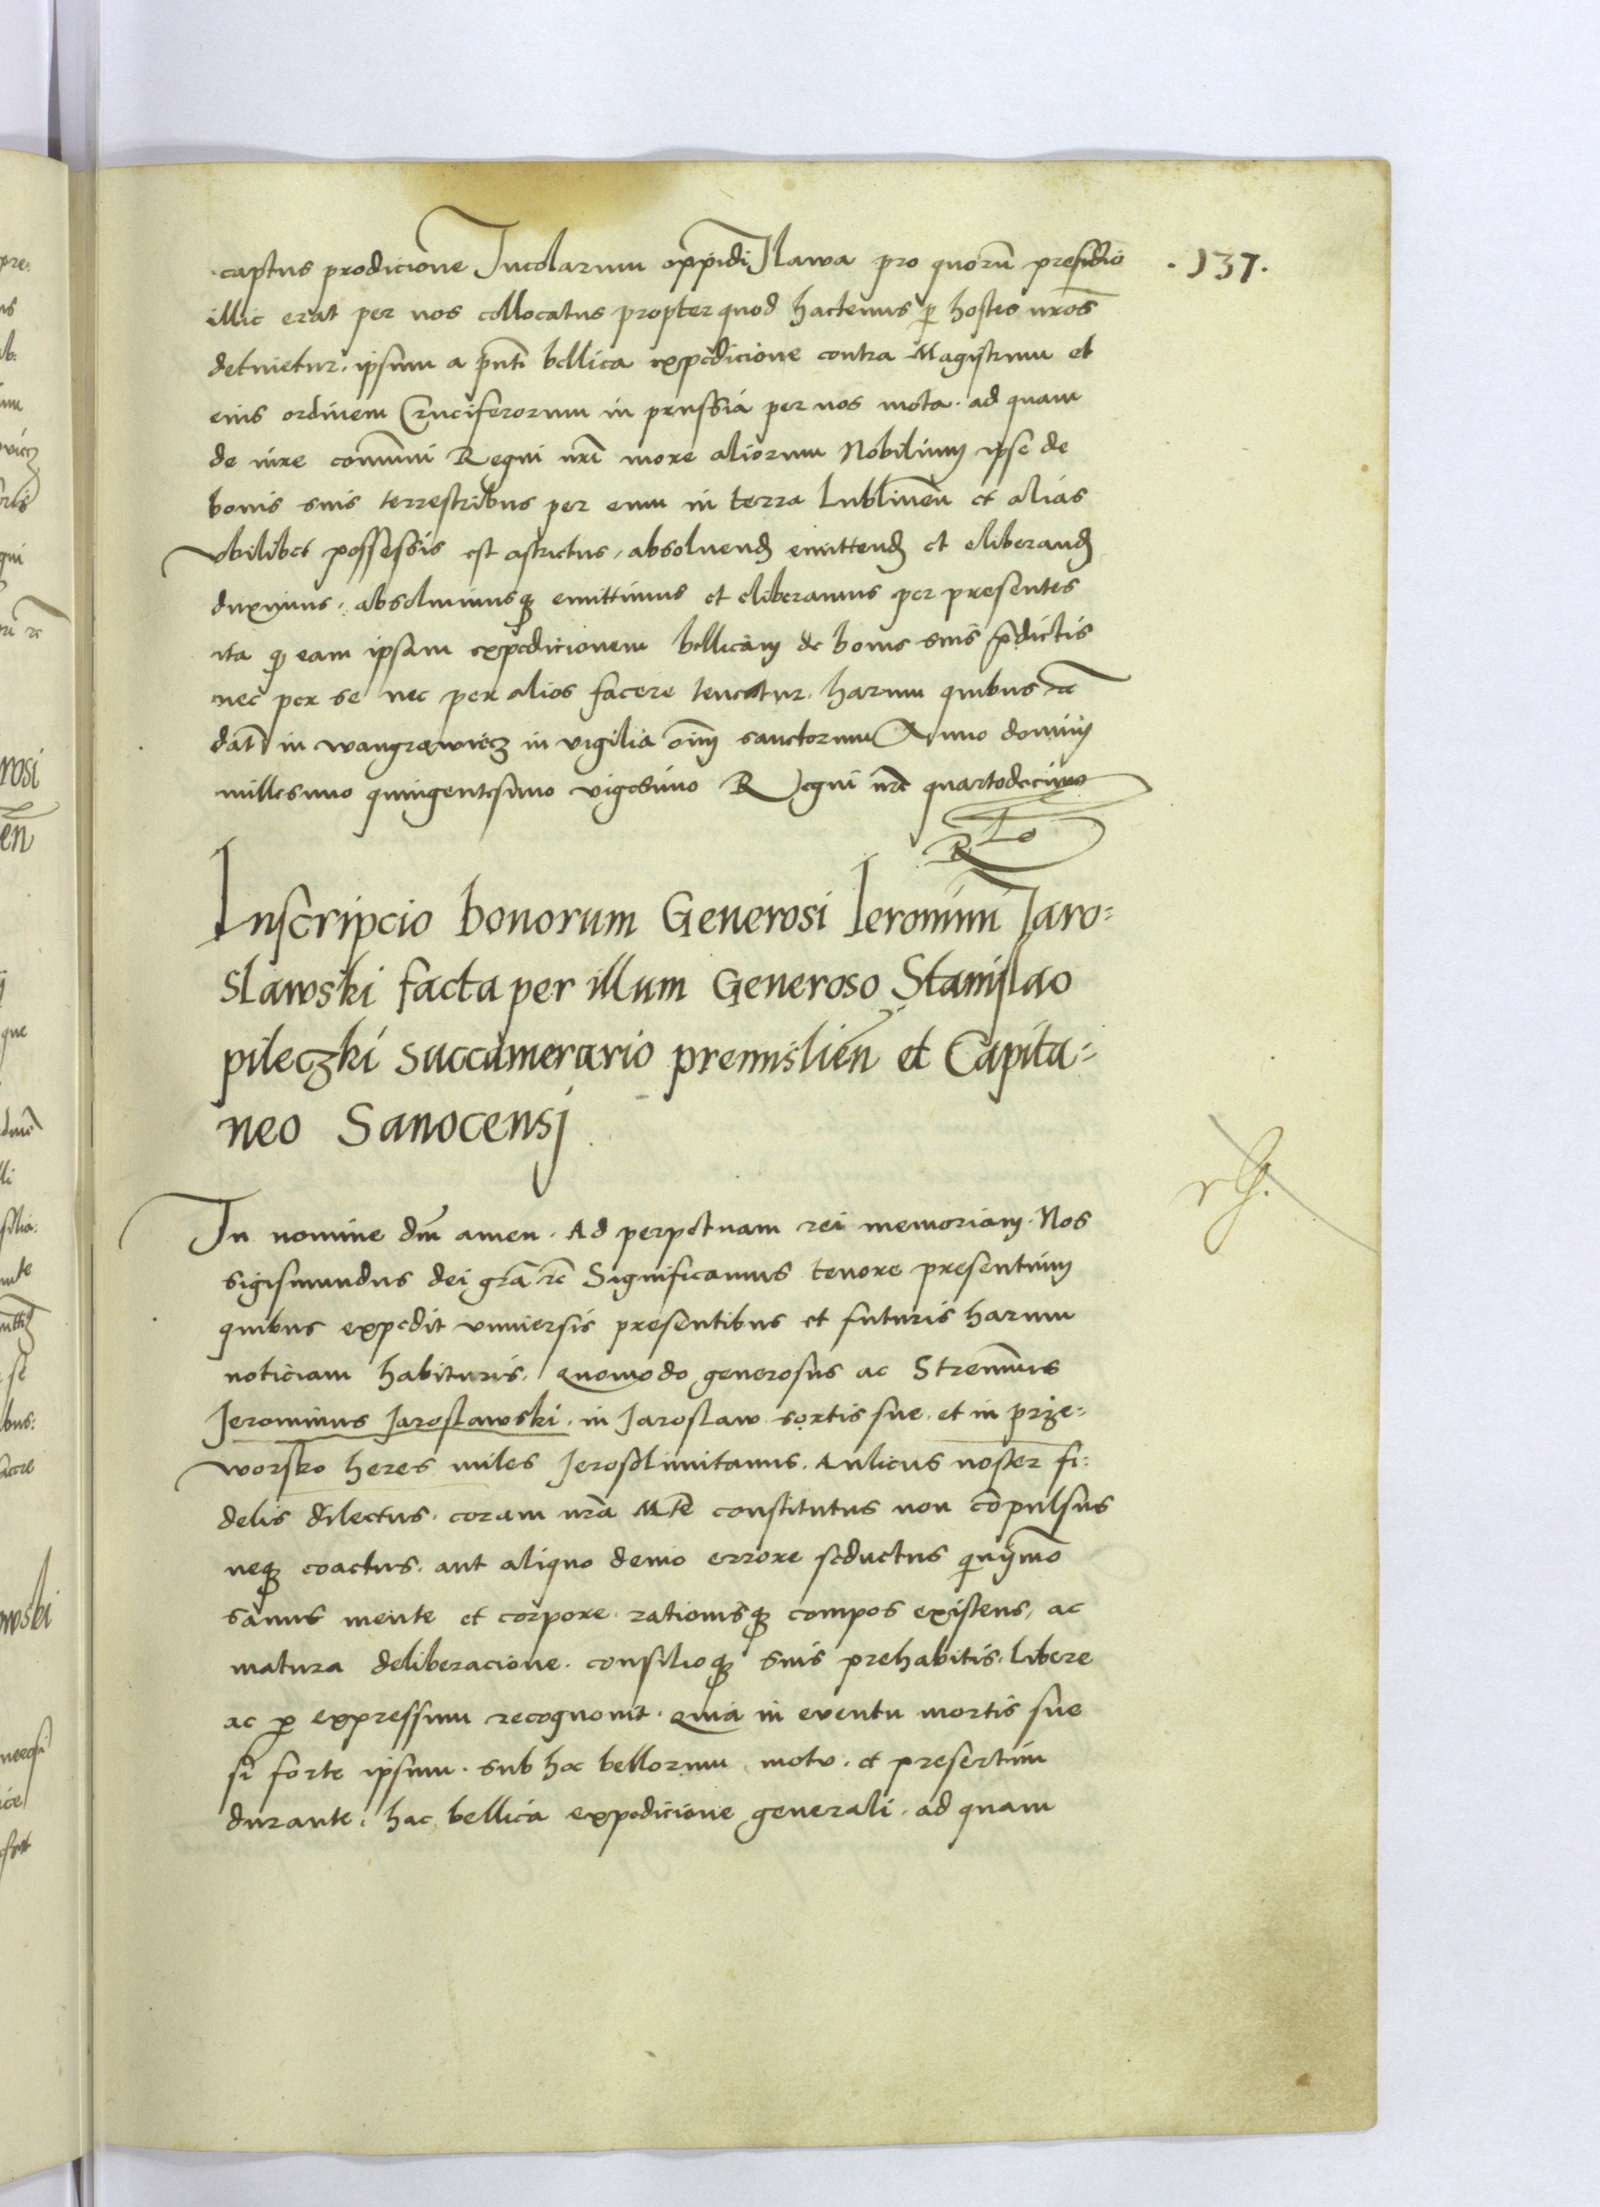 captus prodicione Incolarum oppidi Ilawa pro quorū presidio
·137·
illic erat per nos collocatus propter quod hactenus p hostes nr̄os
detinetur, ipsum a pn̄ti bellica expedicione contra Magistrum et
eius ordinem Cruciferorum in prussia per nos mota· ad quam
de iure com̄uni Regni nr̄i more aliorum Nobilium ipse de
bonis suis terrestribus per eum in terra Lublineñ et alias
vbilibet possessis est astrictus, absoluend emittend et eliberand
duximus, absoluimusq emittimus et eliberamus per presentes
ita q eam ipsam expedicionem bellicam de bonis suis p̄dictis
nec per se nec per alios facere teneatur· harum quibus rc̄
dat̄ in wangrawiecz in vigilia om̄ sanctorum Anno domini
millesimo quingentesimo vigesimo Regni nr̄i quartodecimo
Inscripcio bonorum Generosi Ieronimi Iaro=
slawski facta per illum Generoso Stanislao
pileczki succamerario premislieñ et Capita=
neo Sanocensi
In nomine dn̄i amen· Ad perpetuam rei memoriam· Nos
sigismundus dei gr̄a rc̄ Significamus tenore presentium
quibus expedit vniuersis presentibus et futuris harum
noticiam habituris, Quomodo generosus ac Strennuus
Jeronimus Jaroslawski· in Jaroslaw sortis sue· et in prze=
worsko heres miles Jerosolimitanus· Aulicus noster fi:
delis dilectus· coram nr̄a Mt̄e constitutus non cōpulsus
neq coactus· aut aliquo deuio errore seductus quiymō
sanus mente et corpore rationisq compos existens, ac
matura deliberacione· consilioq suis prehabitis· libere
ac p expressum recognouit· Quia in euentu mortis sue
si forte ipsum· sub hoc bellorum motu· et presertim
durante, hac bellica expedicione generali· ad quam